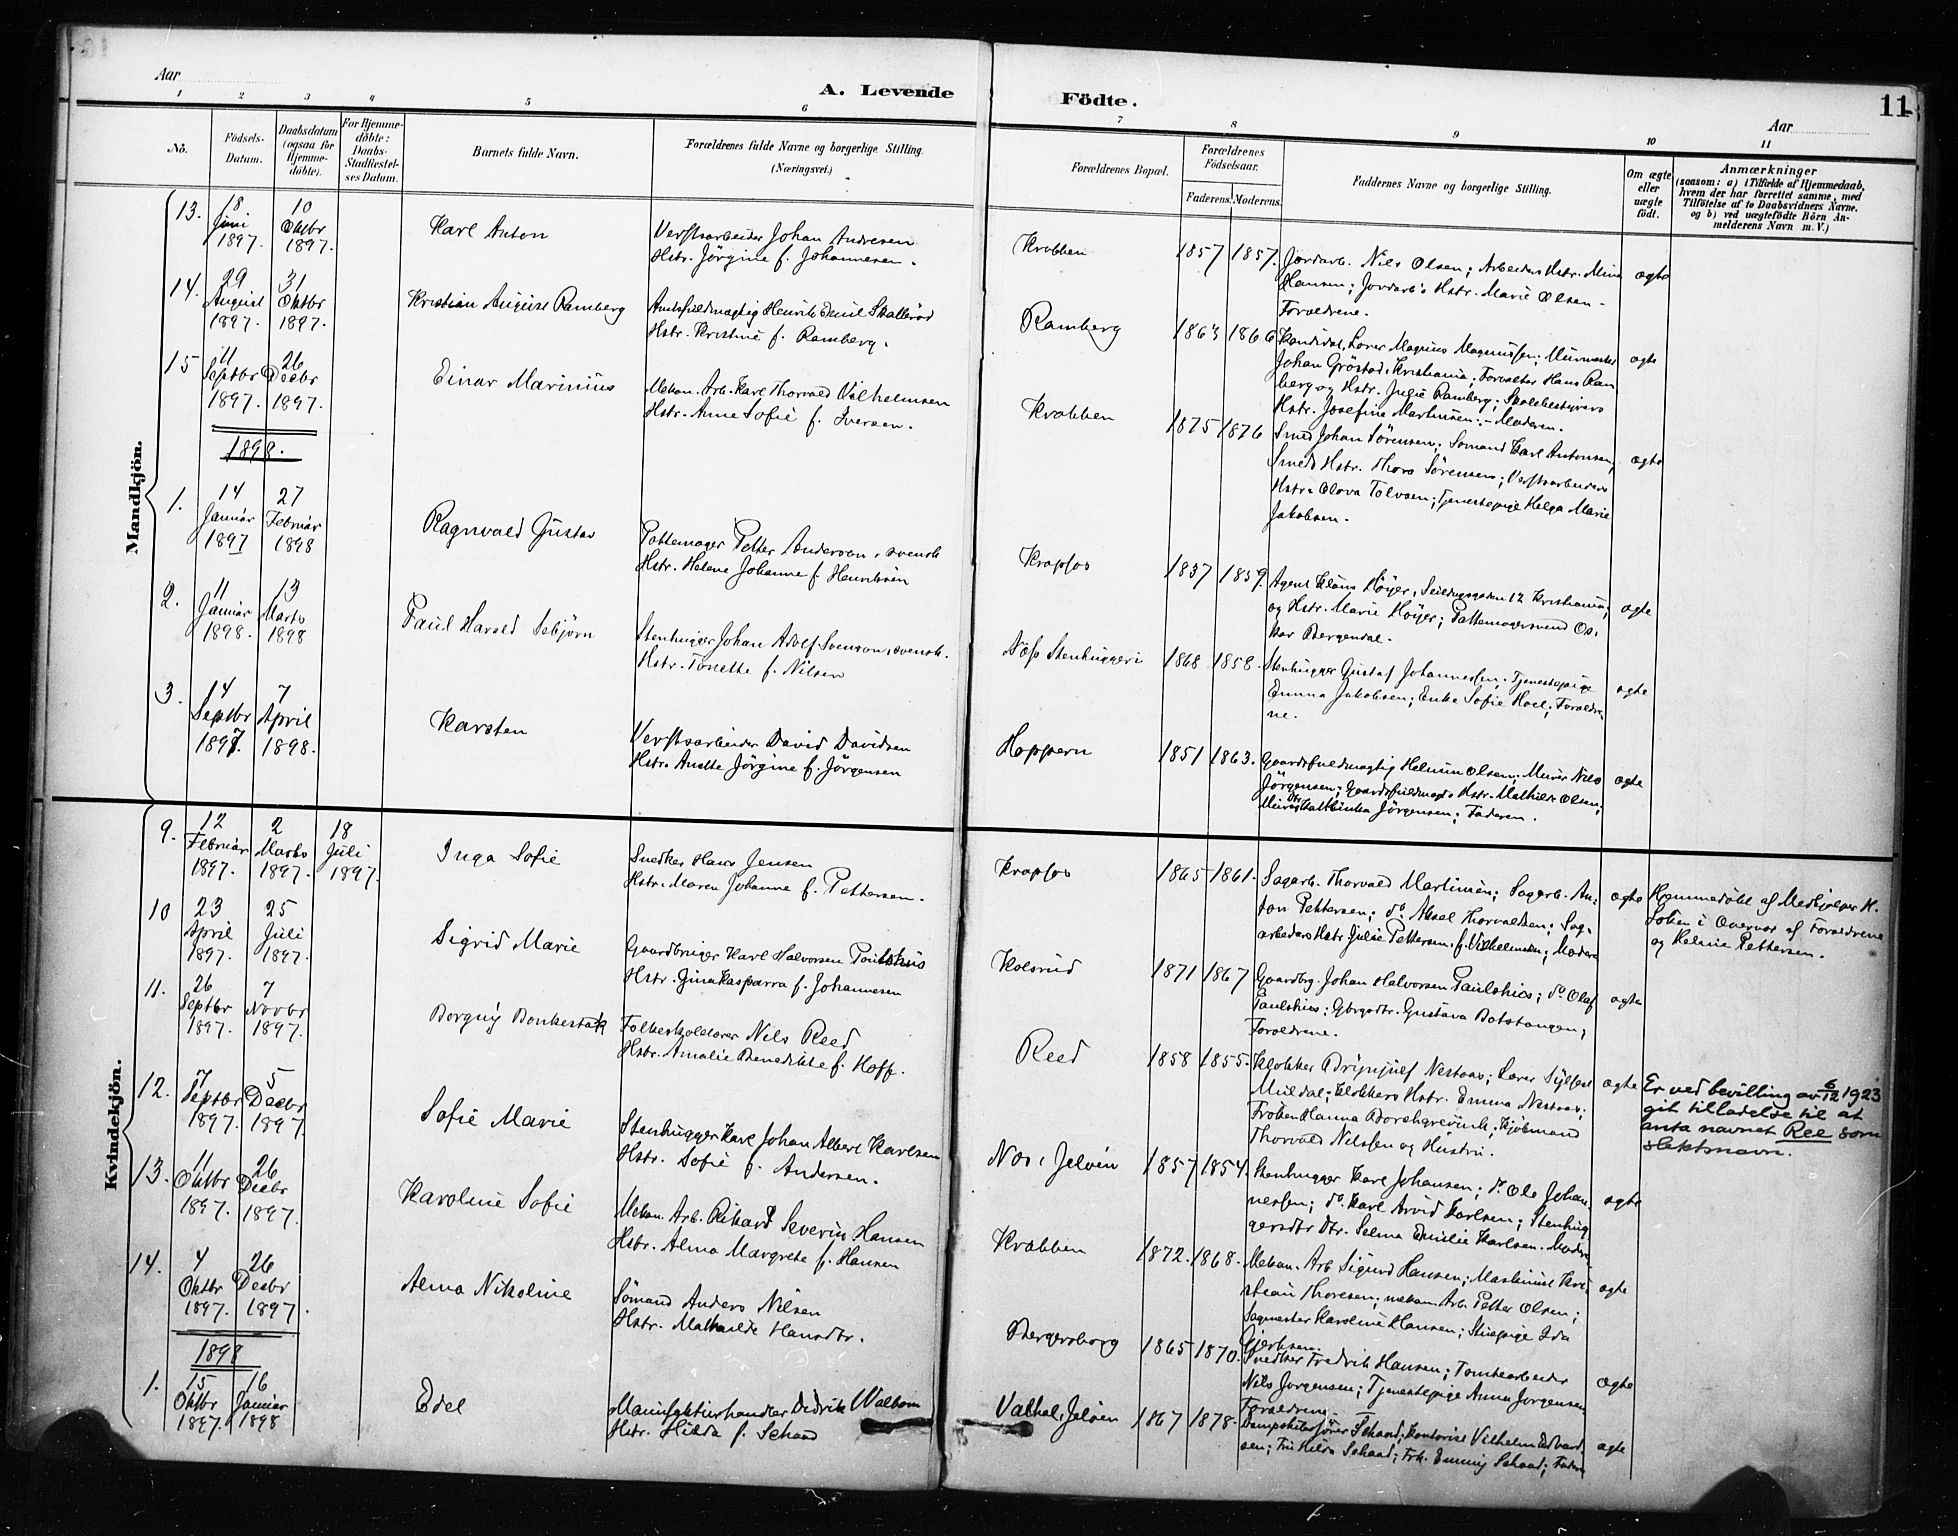 Aar
A. Levende
Födte.
Aar
11
1 2 3 4 5 6 7 8 9 10 11
No.
Födsels-Datum.
Daabsdatum (ogsaa for Hjemme-döbte).
For Hjemme-döbte: Daabs-Stadfæstel-ses Datum.
Barnets fulde Navn.
Forældrenes fulde Navne og borgerlige Stilling.
(Næringsvei.)
Forældrenes Bopæl.
Forældrenes Födselsaar.
Faderens. Moderens.
Faddernes Navne og borgerlige Stilling.
Om ægte eller uægte født.
Anmærkninger
(saasom: a) i Tilfælde af Hjemmedaab,
hvem der har forrettet samme, med
Tilföielse af to Daabsvidners Navne,
og b) ved uægtefödte Börn An-
melderens Navn m. V.)
Mandkjön.
13. 18 Juni 1897. 10 Oktbr 1897.
Karl Anton
Verftsarbeider Johan Andresen
Hstr. Jörgine f. Johannesen.
Krabben 1857 1857.
Jordarb. Nils Olsen; Arbeiders Hstr. Mina
Hansen; Jordarb's Hstr. Marie Olsen -
Forældrene.
ægte
14. 29 August 1897. 31 Oktbr 1897.
Kristian August Ramberg
Amtsfuldmægtig Henrik Emil Skallerød
Hstr. Kristine f. Ramberg.
Ramberg 1863 1866
Kandidat, Lærer Magnus Magnussen; Murmester
Johan Gröstad, Kristiania; Forvalter Hans Ram
berg og Hstr. Julie Ramberg; Skolebestyrers
Hstr. Josefine Martinsen. - Moderen.
ægte
15 11 Septbr 1897. 26 Decbr 1897.
Einar Marinius
Mekan. Arb. Karl Thorvald Vilhelmsen
Hstr. Anne Sofie f. Iversen.
Krabben 1875 1876
Smed Johan Sörensen; Sömand Carl Antonsen,
Smeds Hstr. Thora Sörensen; Verftsarbeiders
Hstr. Olava Tolvsen; Tjenestepige Helga Marie
Jakobsen.
ægte
1898.
1. 14 Januar 1897 27 Februar 1898
Ragnvald Gustav
Pottemager Petter Anderson, svensk
Hstr. Helene Johanne f. Henriksen
Krapfos 1837 1859.
Agent Klaus Höyer, Seildugsgaden 12 Kristiania,
og Hstr. Marie Höyer; Pottemagersvend Os-
kar Bergendal.
ægte
2. 11 Januar 1898. 13 Marts 1898
Paul Harald Sebjörn
Stenhugger Johan Adolf Svenson, svensk.
Hstr. Tonette f. Nilsen
Næs Stenhuggeri 1868 1858.
Stenhugger Gustaf Johannessen; Tjenestepige
Emma Jakobsen; Enke Sofie Hoel; Forældre-
ne.
ægte
3. 14 Septbr 1897. 7 April 1898.
Karsten
Verftsarbeider David Davidsen
Hstr. Anette Jörgine f. Jörgensen
Hoppern 1851 1863.
Gaardsfuldmægtig Helmin Olsen; Murer Nils
Jörgensen; Gaardsfuldmægt's Hstr. Mathilde Olsen;
Jörgensen; Faderen.
ægte
Kvindekjön.
9. 12 Februar 1897. 2 Marts 1897. 18 Juli 1897.
Inga Sofie
Snedker Hans Jensen
Hstr. Maren Johanne f. Pettersen.
Krapfos 1865 1861.
Sagarb. Thorvald Martinsen; Sagarb. An-
ton Pettersen; do Aksel Thorvaldsen; Sag-
arbeiders Hstr Julie Pettersen f. Vilhelmsen; Moderen
ægte
Hjemmedöbt af Medhjælper H.
i Overvær af Forældrene
og Helene Pettersen.
10 23 April 1897. 25 Juli 1897.
Sigrid Marie
Gaardbruger Karl Halvorsen Poulshus
Hstr. Gina Kasparra f. Johannesen
Kolsrud 1871 1867
Gaardbrg. Johan Halvorsen Paulshus; do Olaf
Paulshus; Gbrgsdtr. Gustava Botstangen;
Forældrene.
ægte
11. 26 Septbr 1897. 7 Novbr 1897.
Borgny Bonkestok
Folkeskolelærer Nils Reed
Hstr. Amalie Benedikte f. Hoff.
Reed 1858 1855.
Klokker Brynjulf Nestaas; Lærer Sylfest
Muldal; Klokkers Hstr. Emma Nestaas;
Fröken Hanna Borchgrevink; Kjöbmand
Thorvald Nilssen og Hustru.
ægte
Er ved bevilling av 6/12 1923
git tilladelse til at
anta navnet Ree som
slektsnavn.
12. 7 Septbr 1897. 5 Decbr 1897.
Sofie Marie
Stenhugger Karl Johan Albert Karlsen
Hstr. Sofie f. Andersen.
Næs i Jelöen 1857 1854.
Stenhugger Karl Johansen; do Ole Johan-
nessen; do Karl Arvid Karlsen; Stenhug-
gersdtr Selma Emilie Karlsen. Moderen
ægte
13. 11 Oktbr 1897. 26 Decbr 1897.
Karoline Sofie
Mekan. Arb. Rikard Severin Hansen
Hstr. Alma Margrete f. Hansen
Krabben 1872. 1868.
Mekan. Arb. Sigurd Hansen; Maskinist Kri-
stian Thoresen; mekan. Arb. Petter Olsen;
Sagmester Karoline Hansen; Stuepige Ida
Gjertsen.
ægte
14. 4 Oktbr 1897. 26 Decbr 1897.
Alma Nikoline
Sömand Anders Nilsen
Hstr. Mathilde Hansdtr.
Bergersborg 1865 1870.
Snedker Fredrik Hansen; Tomtearbeider
Nils Jorgensen; Tjenestepige Anna Jorgensen
Forældrene.
ægte
1898
1. 15 Oktbr 1897. 16 Januar 1898
Edel
Manufakturhandler Didrik Walbom
Hstr. Hilda f. Schaad
Valhal, Jelöen 1867 1878.
Dampskibsförer Schaad; Kontorist Vilhelm Edvard
sen; Fru Hilda Schaad; Frk. Emmy Schaad; Faderen
ægte